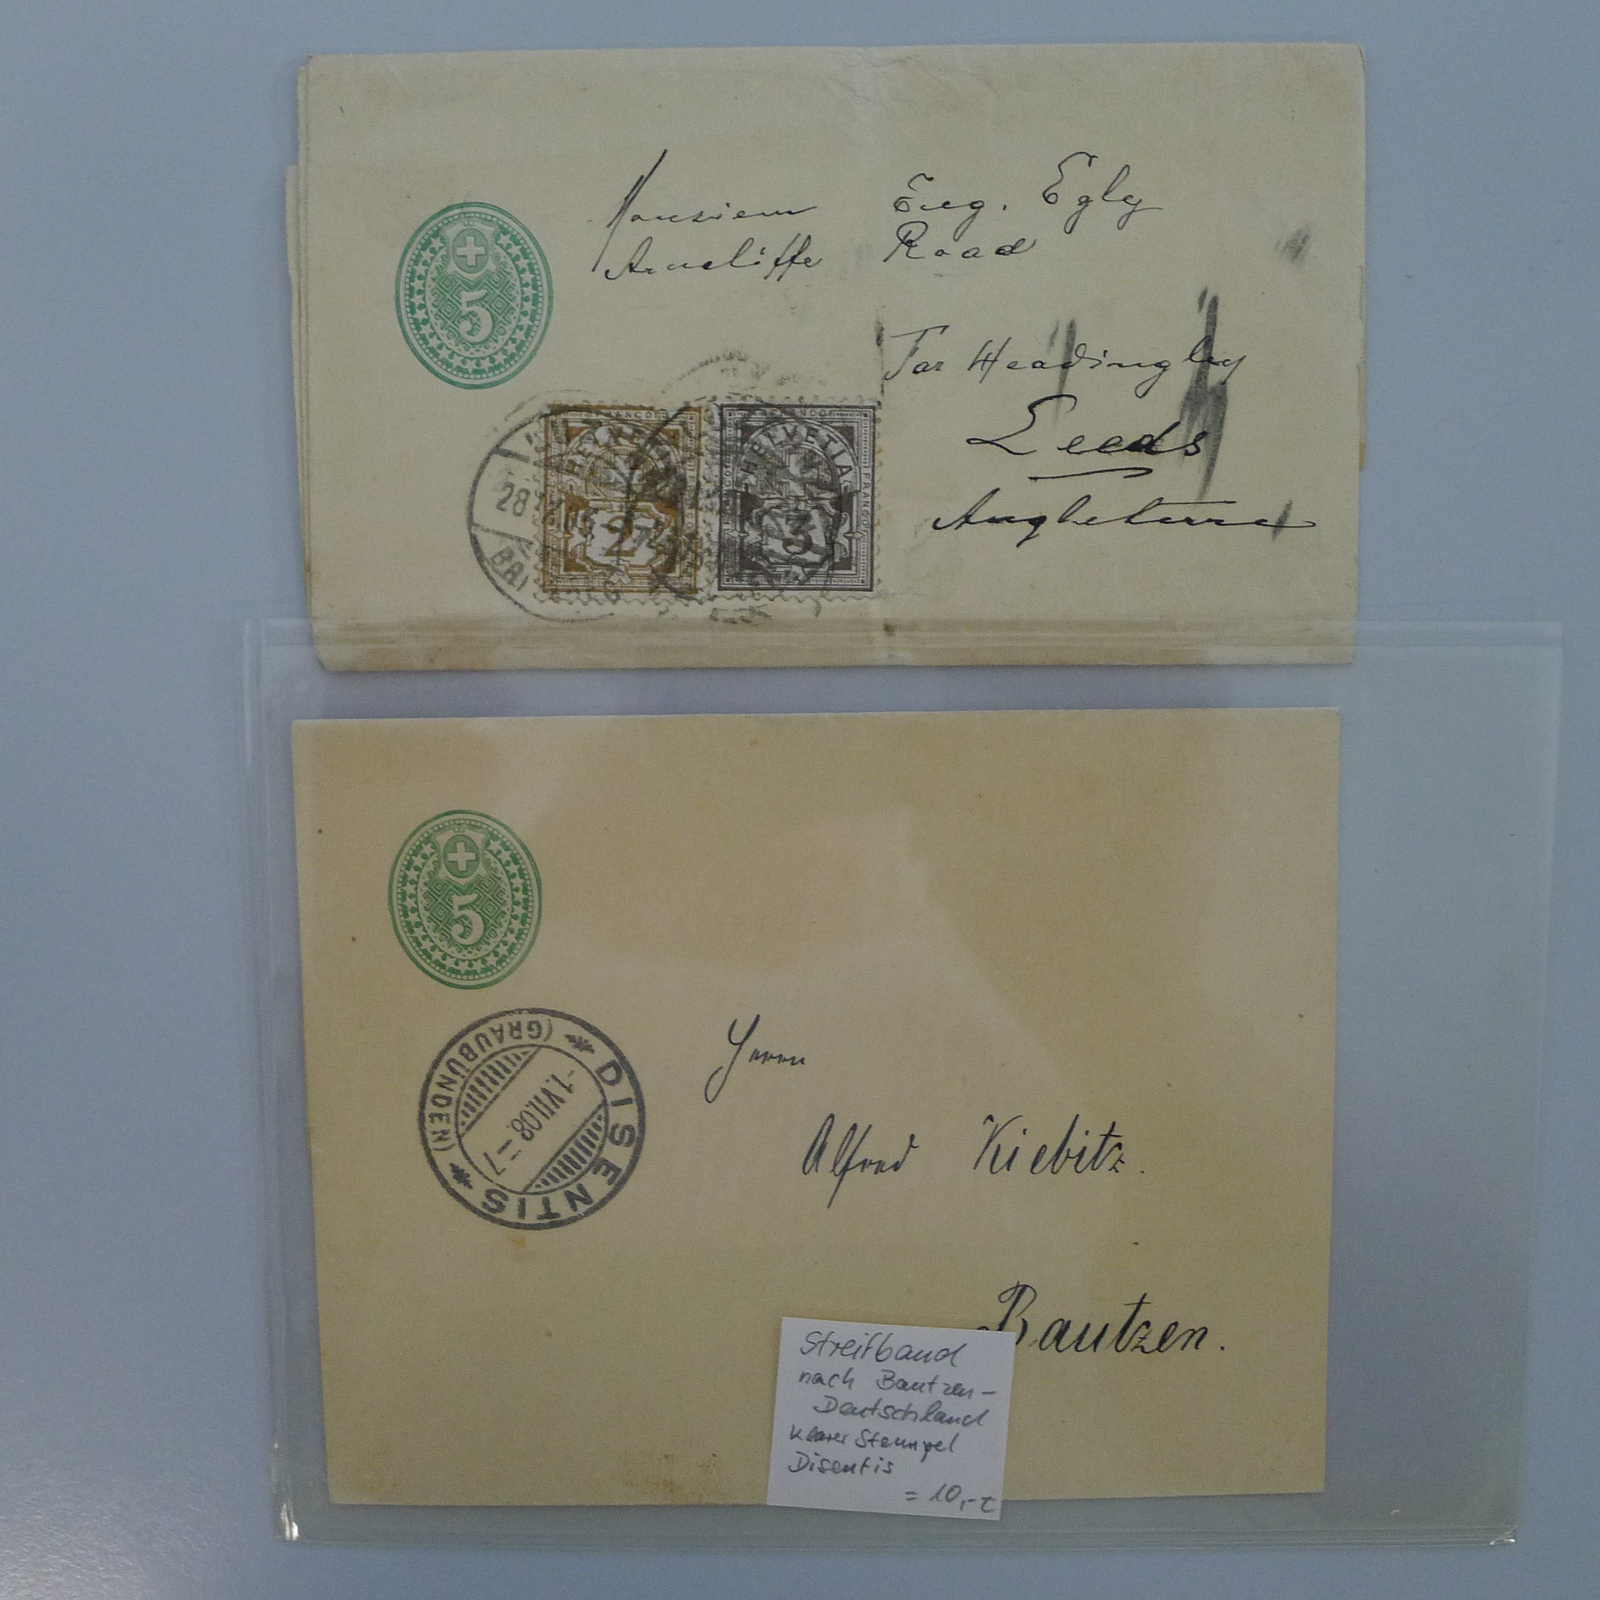 5
Monsieur Eug. Egly
Arncliffe Road
Far Headingley
Leeds
Angleterre
FRANCO
HELVETIA
2
FRANCO
HELVETIA
3
28
BRI
5
DISENTIS
(GRAUBÜNDEN)
-1.VII.08.-7
Herrn
Alfred Kiebitz.
Bautzen.
Streifband
nach Bautzen-
Deutschland
klarer Stempel
Disentis
= 10,- €